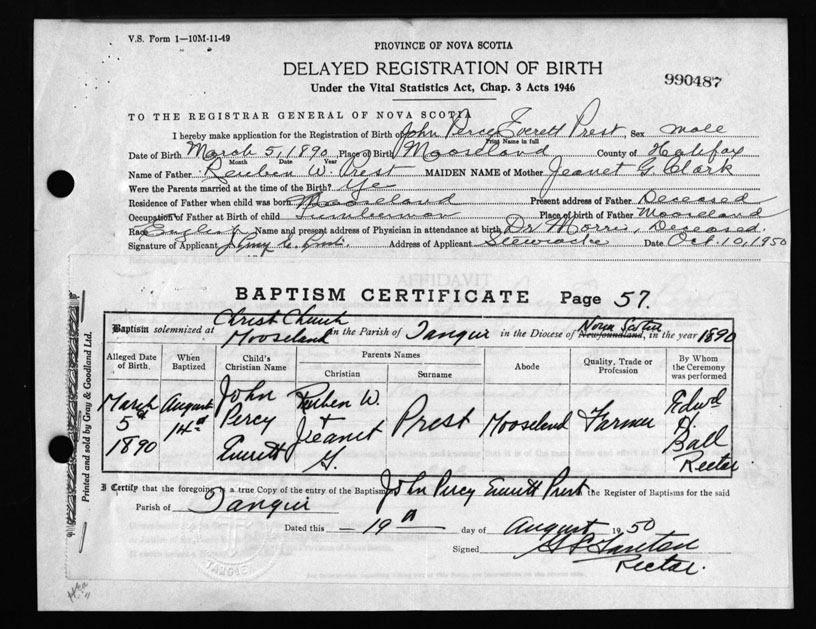 V.S. Form 1—10M-11-49
PROVINCE OF NOVA SCOTIA
DELAYED REGISTRATION OF BIRTH
990487
Under the Vital Statistics Act, Chap. 3 Acts 1946
TO THE REGISTRAR GENERAL OF NOVA SCOTIA
I hereby make application for the Registration of Birth of John Percy Everett Prest, Sex male
Print Name in full
Date of Birth March 5, 1890, Place of Birth Mooseland County of Halifax
Month Date Year
Name of Father Reuben W. Prest MAIDEN NAME of Mother Jeanet G. Clark
Were the Parents married at the time of the Birth? Ye
Residence of Father when child was born Mooseland Present address of Father Deceased
Occupation of Father at Birth of child Lumberman Place of birth of Father Mooseland
Race English Name and present address of Physician in attendance at birth Dr Morris, Deceased.
Signature of Applicant Address of Applicant Date Oct. 10, 1950
AFFIDAVIT
BAPTISM CERTIFICATE Page 57.
Baptism solemnized at Christ Church Mooseland in the Parish of Tangier in the Diocese of Newfoundland, Nova Scotia in the year 1890
Alleged Date of Birth. When Baptized Child's Christian Name Parents Names Christian Surname Abode Quality, Trade or Profession By Whom the Ceremony was performed
March 5th 1890 August 14th John Percy Everett Reuben W. + Jeanet G. Prest Mooseland Farmer Edwd H. Ball Rector
I Certify that the foregoing is a true Copy of the entry of the Baptism John Percy Everett Prest the Register of Baptisms for the said
Parish of Tangier
Dated this 19th day of August 1950
Signed
Rector.
Printed and sold by Gray & Goodland Ltd.
TANGIER